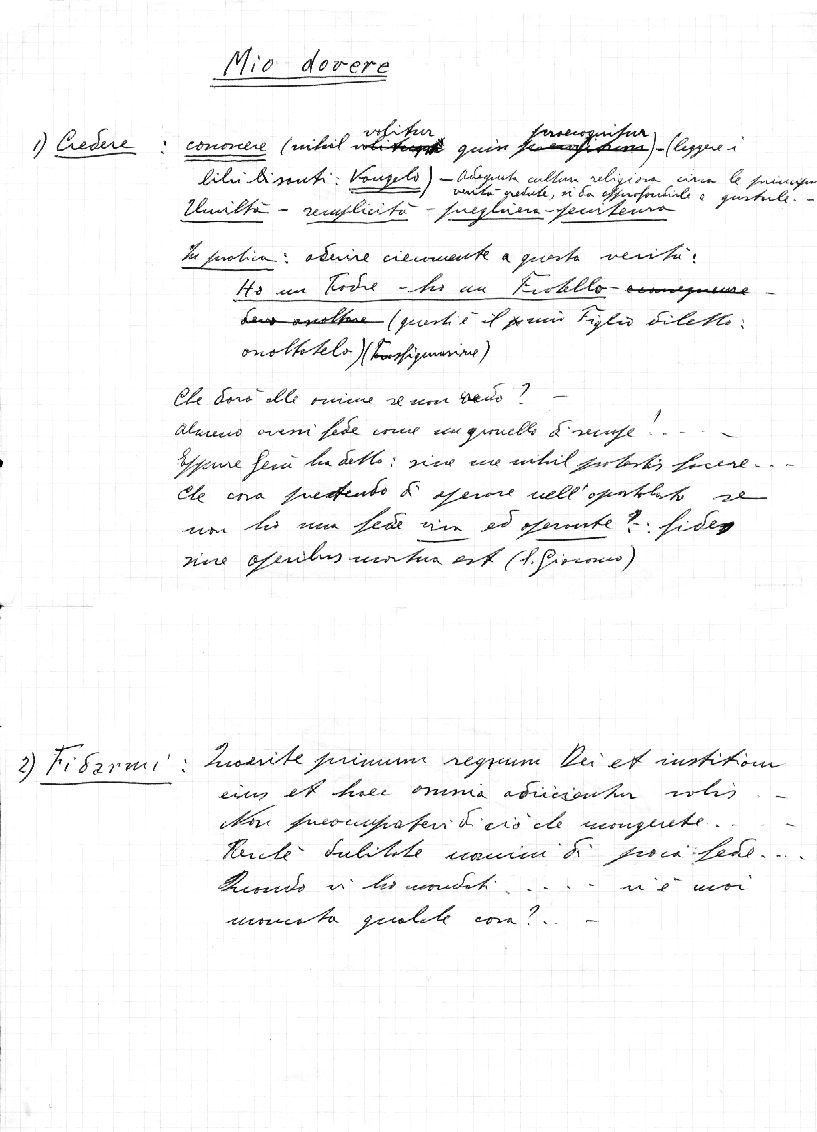 Mio dovere
1) Credere : conoscere (nihil volitur quin praecognitur) - (leggere i
libri di santi: Vangelo) - Adeguata cultura religiosa circa le principali
verità credute, sì da approfondirle e gustarle. -
Umiltà - semplicità - preghiera - penitenza
In pratica : aderire ciecamente a questa verità:
Ho un Padre - ho un Fratello - conseguenza -
devo ascoltare (questi è il mio Figlio diletto:
ascoltatelo) (Trasfigurazione)
Che darò alle anime se non credo? -
Almeno avessi fede come un granello di senape! . . . -
Eppure Gesù ha detto: sine me nihil potestis facere . . .
Che cosa pretendo di operare nell'apostolato se
non ho una fede viva ed operante? -: fides
sine operibus mortua est (S. Giacomo)
2) Fidarmi : Quaerite primum regnum Dei et iustitiam
eius et haec omnia adiicientur vobis . . -
Non preoccupatevi di ciò che mangerete . . -
Perchè dubitate uomini di poca fede . . .
Quando vi ho mandati . . . . . - vi è mai
mancata qualche cosa? . . -